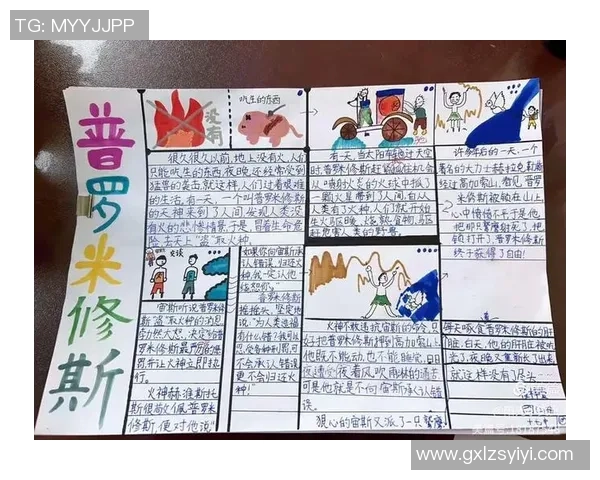 TG: MYYJJPP
普罗米修斯
没有
吃生的东西
很久很久以前,地上没有火,人们
只能吃生的东西,夜晚还经常受到
猛兽的袭击,就这样,人们过着艰难
的生活。有一天,一个叫普罗米修斯
的天神来到了人间,发现人类没
有火的悲惨情景,于是,冒着生命危
险,去天上“盗”取火种。
有一天,当太阳车
普罗米修斯
从
一颗火星带到了人间,自从
人类有了火种,人们就开始
生火取暖、烧熟食物,驱
赶危害人类的野兽。
许多年后的一天,一个
著名的大力士赫拉克勒斯
经过高加索山,看见普罗
米修斯被锁在山上,
心中愤愤不平,于是他
锁打开了,普罗米修斯
终于获得了自由!
交谈
宙斯听说普罗米
修斯“盗”取火种的消息,
决定给
普罗米修斯最严厉的
罚,并让火神立即执
行。
火神赫淮斯托
斯很敬佩普罗米
修斯,便对他说:“
如果你向宙斯
承认错误,归还火
种,我一定让他
饶恕你。”
普罗米修斯
摇摇头,坚定地
说:“为人类造福
有什么错?我可以
忍受各种
不会承认错误,
更不会归还火
种!”
火神不敢违抗宙斯的命令,只
好把普罗米修斯押到高加索山上,
他既不能动,也不能睡觉,日日
夜夜遭受着风吹雨淋的痛苦,
可是他就是不向宙斯承认错
误。
狠心的宙斯又派了一只鹫鹰,
每天啄食普罗米修斯的肝
脏,白天,他的肝脏被吃
光了,夜晚又重新长了出来,
就这样没有尽头……
www.gxlzsyiyi.com